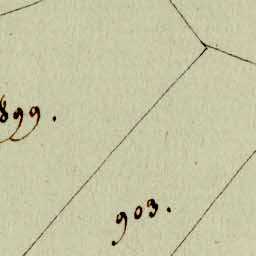 899.
903.